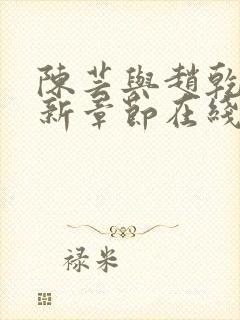 陳芸與趙乾
新章節在綫
禄米